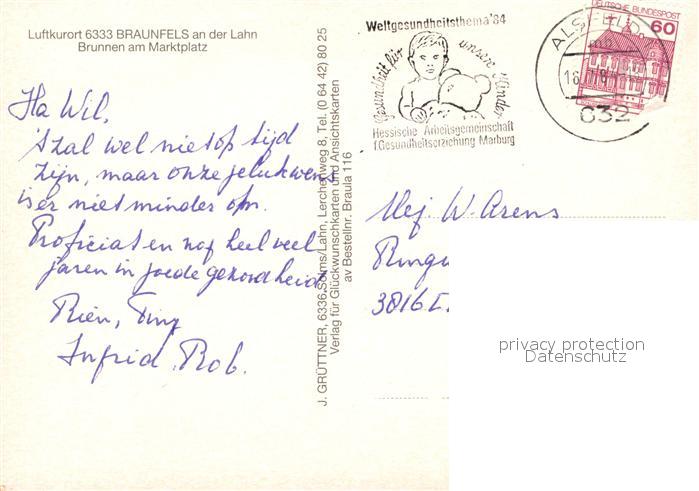 Luftkurort 6333 BRAUNFELS an der Lahn
Brunnen am Marktplatz
Ha Wil,
't zal wel niet op tijd
zijn, maar onze gelukwens
is er niet minder om.
Proficiat en nog heel veel
jaren in goede gezondheid.
Rien, Tiny
Ingrid. Rob.
J. GRÜTTNER, 6336 Solms/Lahn, Lerchenweg 8, Tel. (0 64 42) 80 25
Verlag für Glückwunschkarten und Ansichtskarten
av Bestellnr. Braula 116
Weltgesundheitsthema '84
Gesundheit für unsere Kinder
Hessische Arbeitsgemeinschaft
f.Gesundheitserziehung Marburg
ALSFELD
632
DEUTSCHE BUNDESPOST
60
Mej. W. Arens
3816
privacy protection
Datenschutz